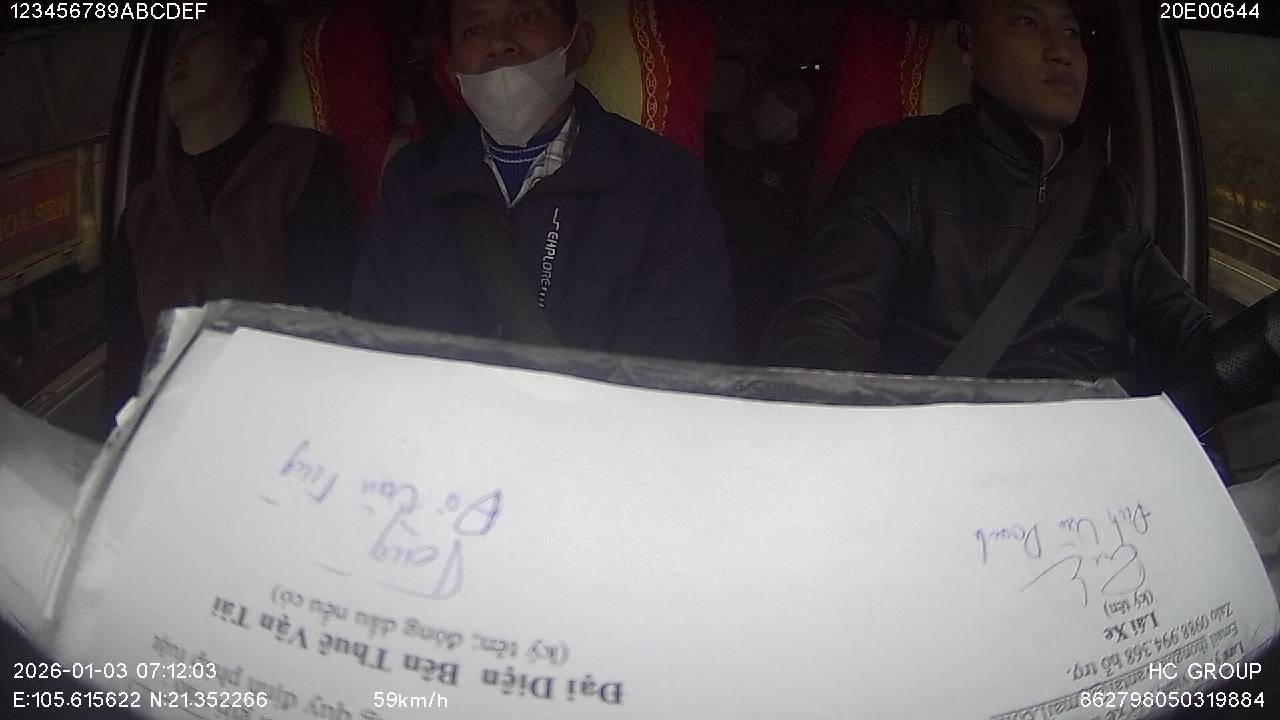 123456789ABCDEF
20E00644
HOA SEN
EMPLORE
Lái Xe
(ký tên)
Đinh Văn Doanh
Zalo 0988.994.368 hỗ trợ.
Email
quy định pháp luật
Đại Diện Bên Thuê Vận Tải
(ký tên, đóng dấu nếu có)
Tùng
Đỗ Văn Tùng
2026-01-03 07:12:03
HC GROUP
E:105.615622 N:21.352266
59km/h
862798050319884